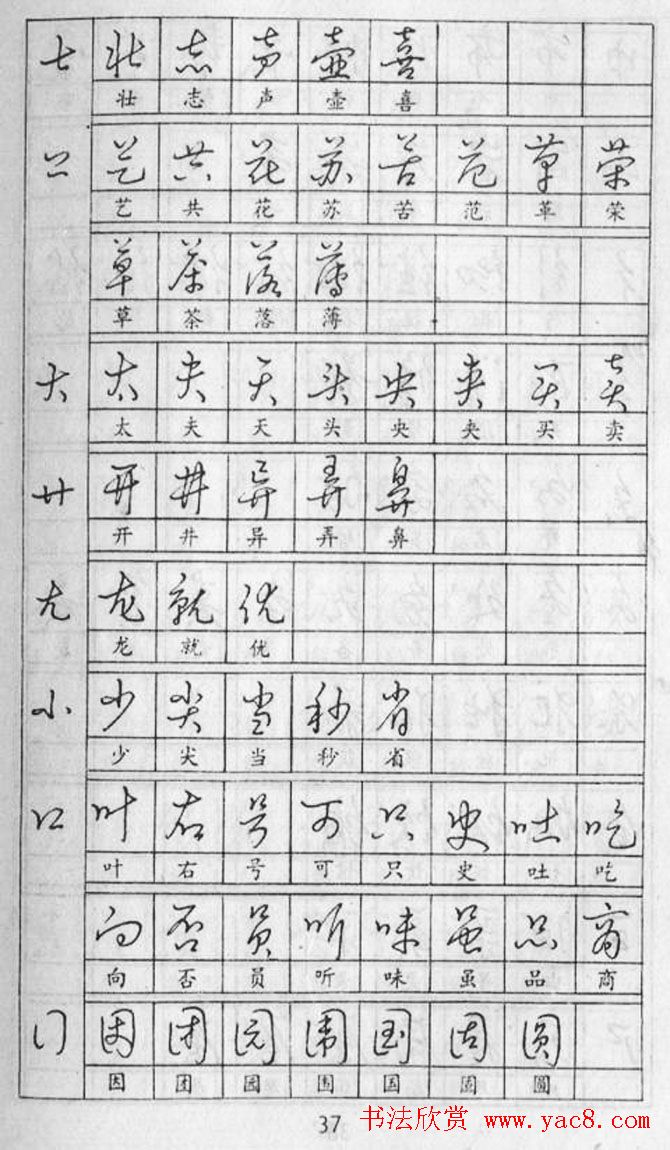 士 壮 志 声 壶 喜
壮 志 声 壶 喜
艹 艺 共 花 苏 苦 范 革 荣
艺 共 花 苏 苦 范 革 荣
草 茶 落 薄
草 茶 落 薄
大 太 夫 天 头 央 夹 买 卖
太 夫 天 头 央 夹 买 卖
廾 开 井 异 弄 鼻
开 井 异 弄 鼻
尢 龙 就 优
龙 就 优
小 少 尖 当 秒 省
少 尖 当 秒 省
口 叶 右 号 可 只 史 吐 吃
叶 右 号 可 只 史 吐 吃
向 否 员 听 味 虽 品 商
向 否 员 听 味 虽 品 商
囗 因 团 园 围 国 固 圆
因 团 园 围 国 固 圆
37
书法欣赏 www.yac8.com